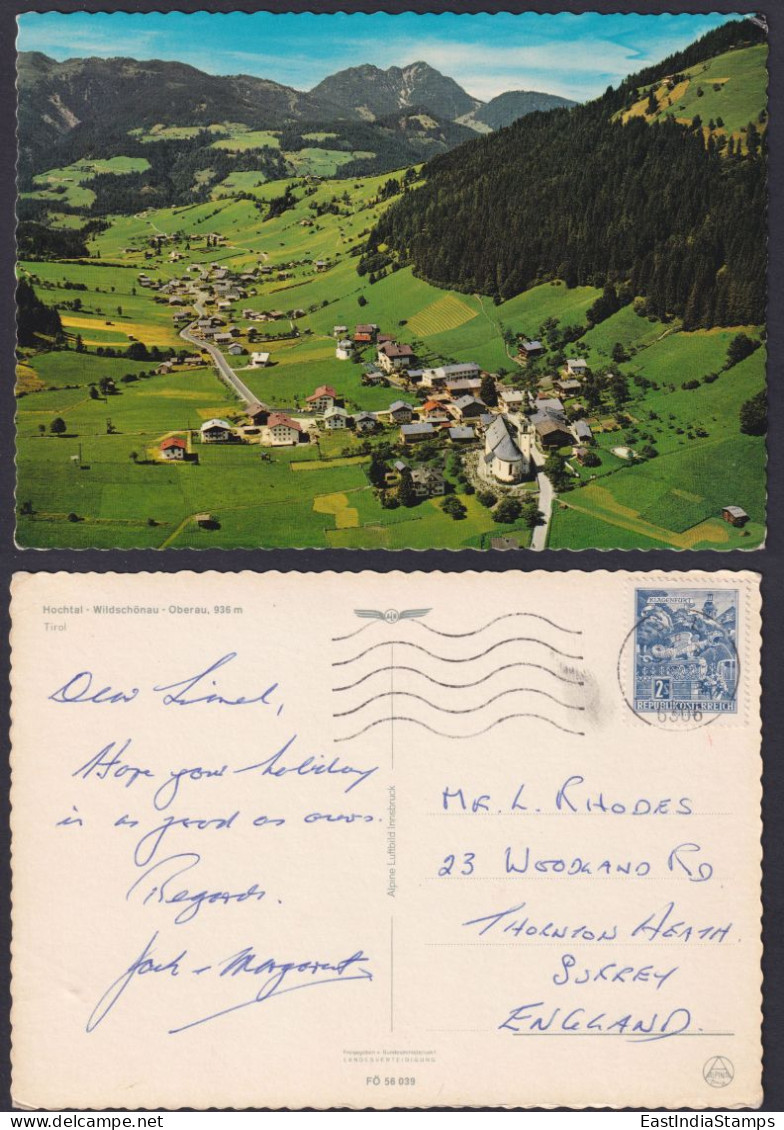 Hochtal · Wildschönau · Oberau, 936 m
Tirol
KLAGENFURT
2S
REPUBLIK ÖSTERREICH
6306
Dear Lionel,
Hope your holiday
is as good as ours.
Regards.
Jack + Margaret
Alpine Luftbild Innsbruck
MR. L. RHODES
23 WOODLAND RD
THORNTON HEATH.
SURREY
ENGLAND.
Freigegeben v. Bundesministerium f.
LANDESVERTEIDIGUNG
FÖ 56 039
ALPINE
EastIndiaStamps